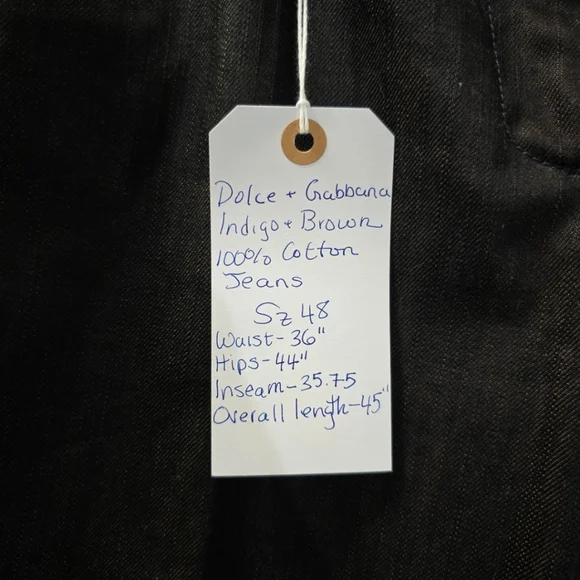 Dolce + Gabbana
Indigo + Brown
100% Cotton
Jeans
Sz 48
Waist-36"
Hips-44"
Inseam-35.75
Overall length-45"